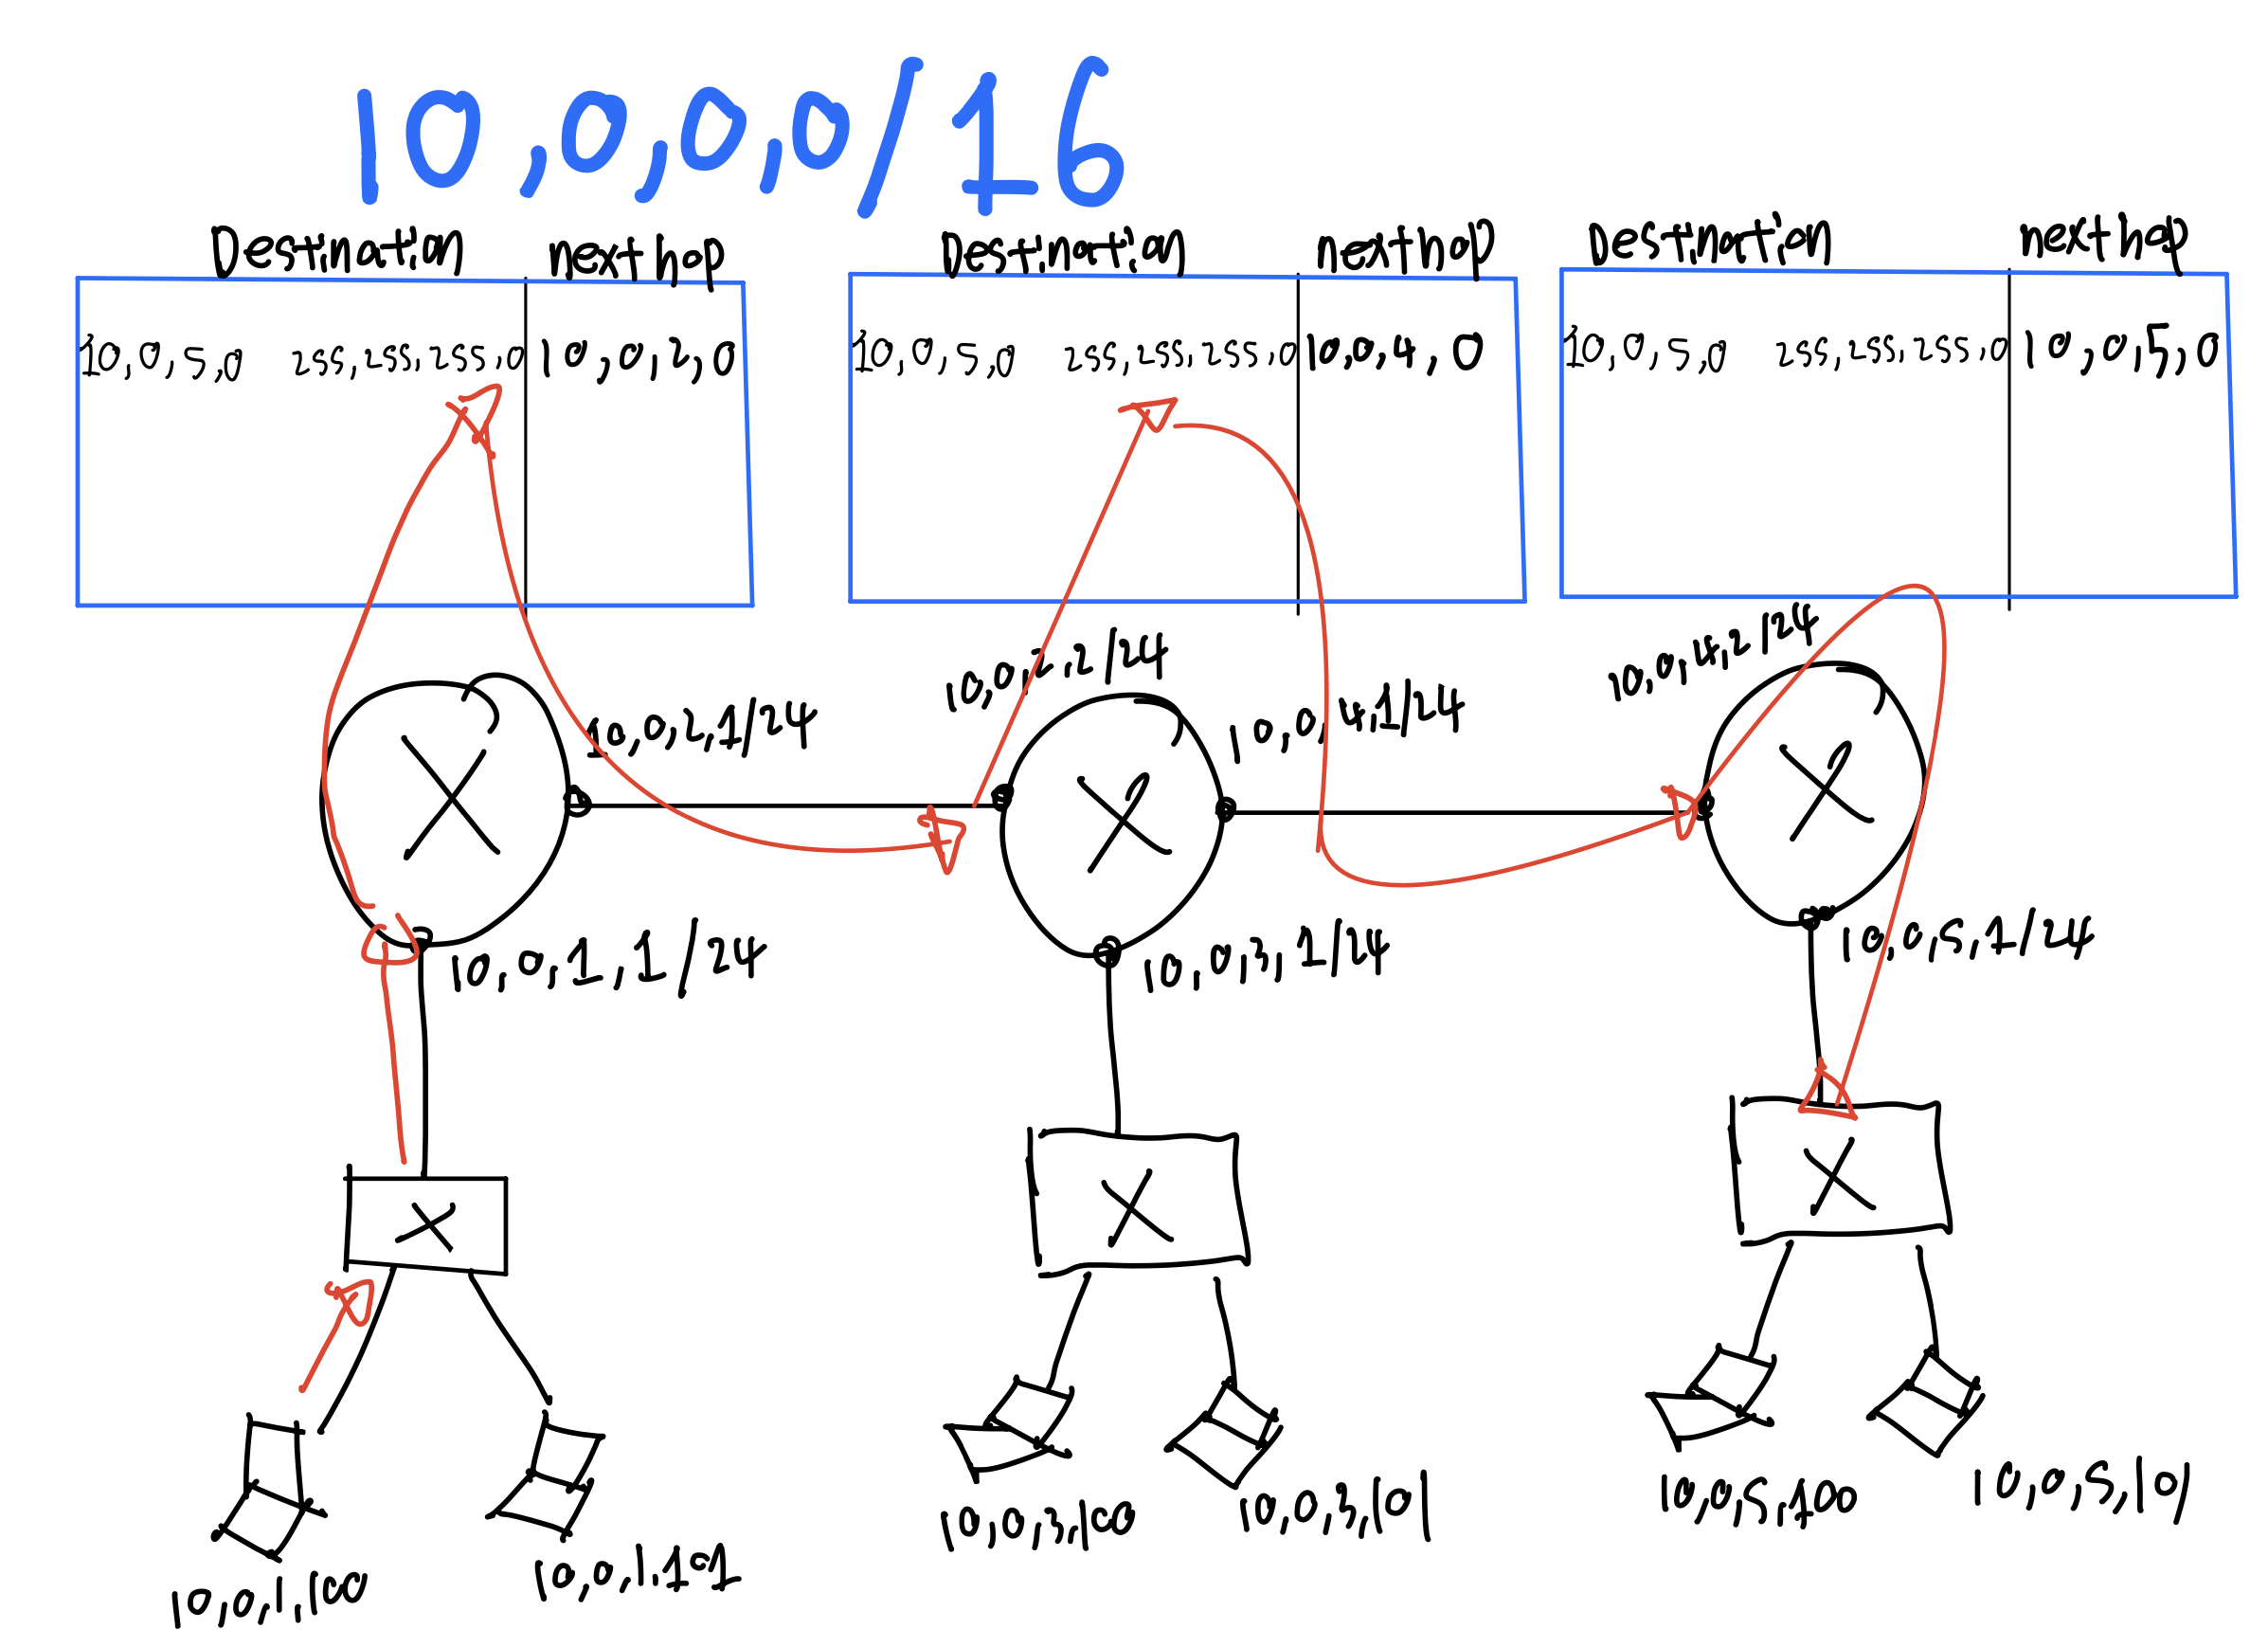 10,0,0,0/16
Destination nexthop Destination nexthop Destination nexthop
10,0,5,0 255,255,255,0 10,0,2,0 10,0,5,0 255,255,255,0 10,0,4,0 10,0,5,0 255,255,255,0 10,0,5,0
10,0,2,1/24
10,0,2,2/24
10,0,4,1/24
10,0,4,2/24
10,0,1,1/24
10,0,3,1/24
10,0,5,1/24
10,0,1,100
10,0,1,101
10,0,3,100
10,0,3,101
10,0,5,100
10,0,5,101